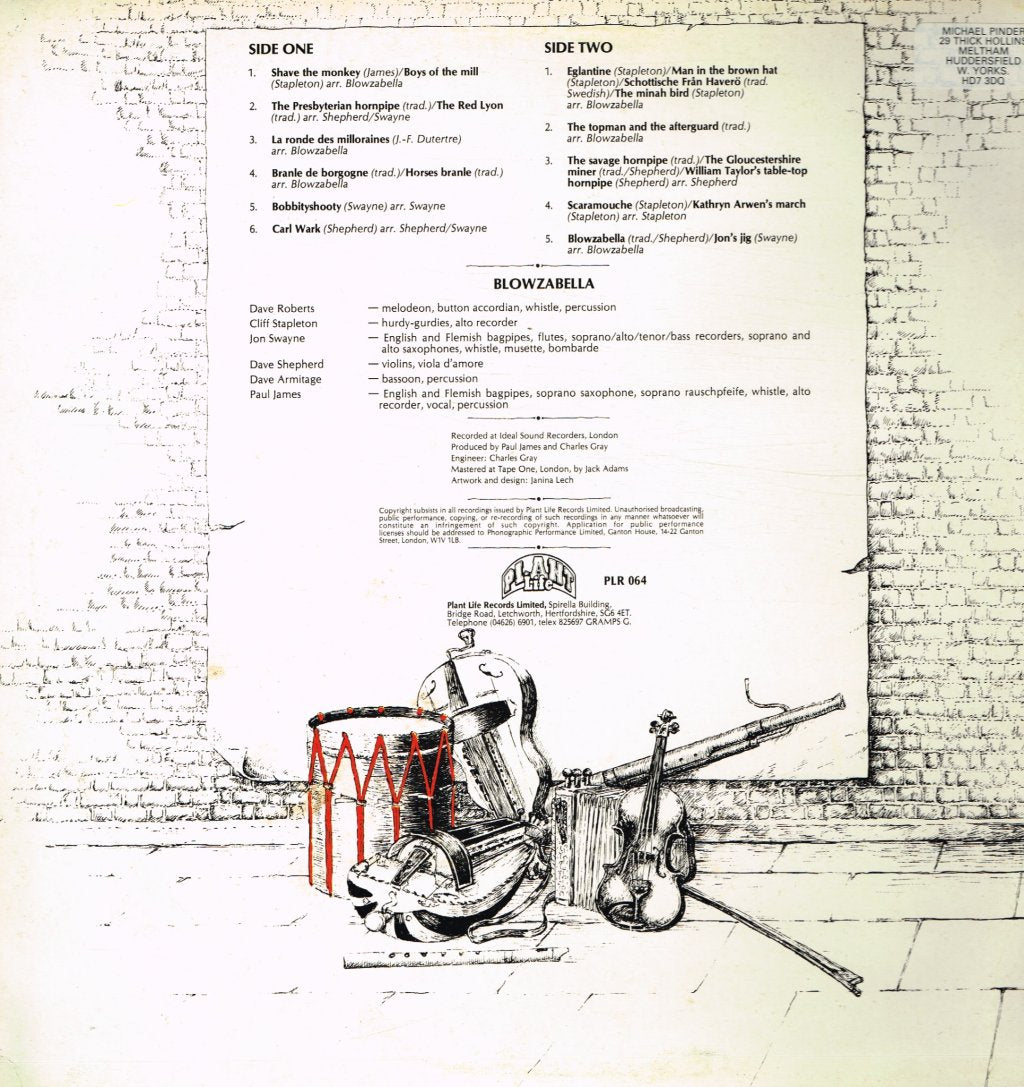 MICHAEL PINDER
29 THICK HOLLINS
MELTHAM
HUDDERSFIELD
W. YORKS.
HD7 3DQ
SIDE ONE
1. Shave the monkey (James)/Boys of the mill
(Stapleton) arr. Blowzabella
2. The Presbyterian hornpipe (trad.)/The Red Lyon
(trad.) arr. Shepherd/Swayne
3. La ronde des milloraines (J.-F. Dutertre)
arr. Blowzabella
4. Branle de borgogne (trad.)/Horses branle (trad.)
arr. Blowzabella
5. Bobbityshooty (Swayne) arr. Swayne
6. Carl Wark (Shepherd) arr. Shepherd/Swayne
SIDE TWO
1. Eglantine (Stapleton)/Man in the brown hat
(Stapleton)/Schottische Från Haverö (trad.
Swedish)/The minah bird (Stapleton)
arr. Blowzabella
2. The topman and the afterguard (trad.)
arr. Blowzabella
3. The savage hornpipe (trad.)/The Gloucestershire
miner (trad./Shepherd)/William Taylor's table-top
hornpipe (Shepherd) arr. Shepherd
4. Scaramouche (Stapleton)/Kathryn Arwen's march
(Stapleton) arr. Stapleton
5. Blowzabella (trad./Shepherd)/Jon's jig (Swayne)
arr. Blowzabella
BLOWZABELLA
Dave Roberts — melodeon, button accordian, whistle, percussion
Cliff Stapleton — hurdy-gurdies, alto recorder
Jon Swayne — English and Flemish bagpipes, flutes, soprano/alto/tenor/bass recorders, soprano and
alto saxophones, whistle, musette, bombarde
Dave Shepherd — violins, viola d'amore
Dave Armitage — bassoon, percussion
Paul James — English and Flemish bagpipes, soprano saxophone, soprano rauschpfeife, whistle, alto
recorder, vocal, percussion
Recorded at Ideal Sound Recorders, London
Produced by Paul James and Charles Gray
Engineer: Charles Gray
Mastered at Tape One, London, by Jack Adams
Artwork and design: Janina Lech
Copyright subsists in all recordings issued by Plant Life Records Limited. Unauthorised broadcasting,
public performance, copying, or re-recording of such recordings in any manner whatsoever will
constitute an infringement of such copyright. Application for public performance
licenses should be addressed to Phonographic Performance Limited, Ganton House, 14-22 Ganton
Street, London, W1V 1LB.
PLANT
Life
PLR 064
Plant Life Records Limited, Spirella Building,
Bridge Road, Letchworth, Hertfordshire, SG6 4ET.
Telephone (04626) 6901, telex 825697 GRAMPS G.